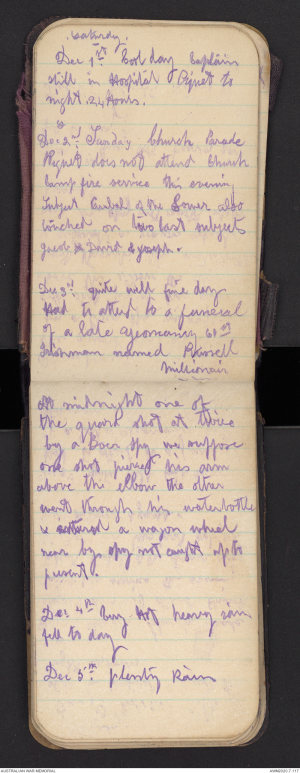 Saturday.
Dec 1st Cool day Captain
still in Hospital Piquet to
night. 24 Hours.
Dec 2nd Sunday Church Parade
Piquet does not attend Church
Camp fire service this evening
Subject Parbel of the Sower also
touched on two last subjects
Jacob & David & Joseph.
Dec 3rd quite well fine day
Had to attend to a funeral
of a late yeomanry
Irishman named
Millionair
At midnight one of
the guard shot at twice
by a Boer spy we suppose
one shot pierced his arm
above the elbow the other
went through his waterbottle
& entered a wagon wheel
near by spy not caught up to
present.
Dec 4th Very Hot heavy rain
fell to day
Dec 5th plenty Rain
AUSTRALIAN WAR MEMORIAL
AWM2020.7.177